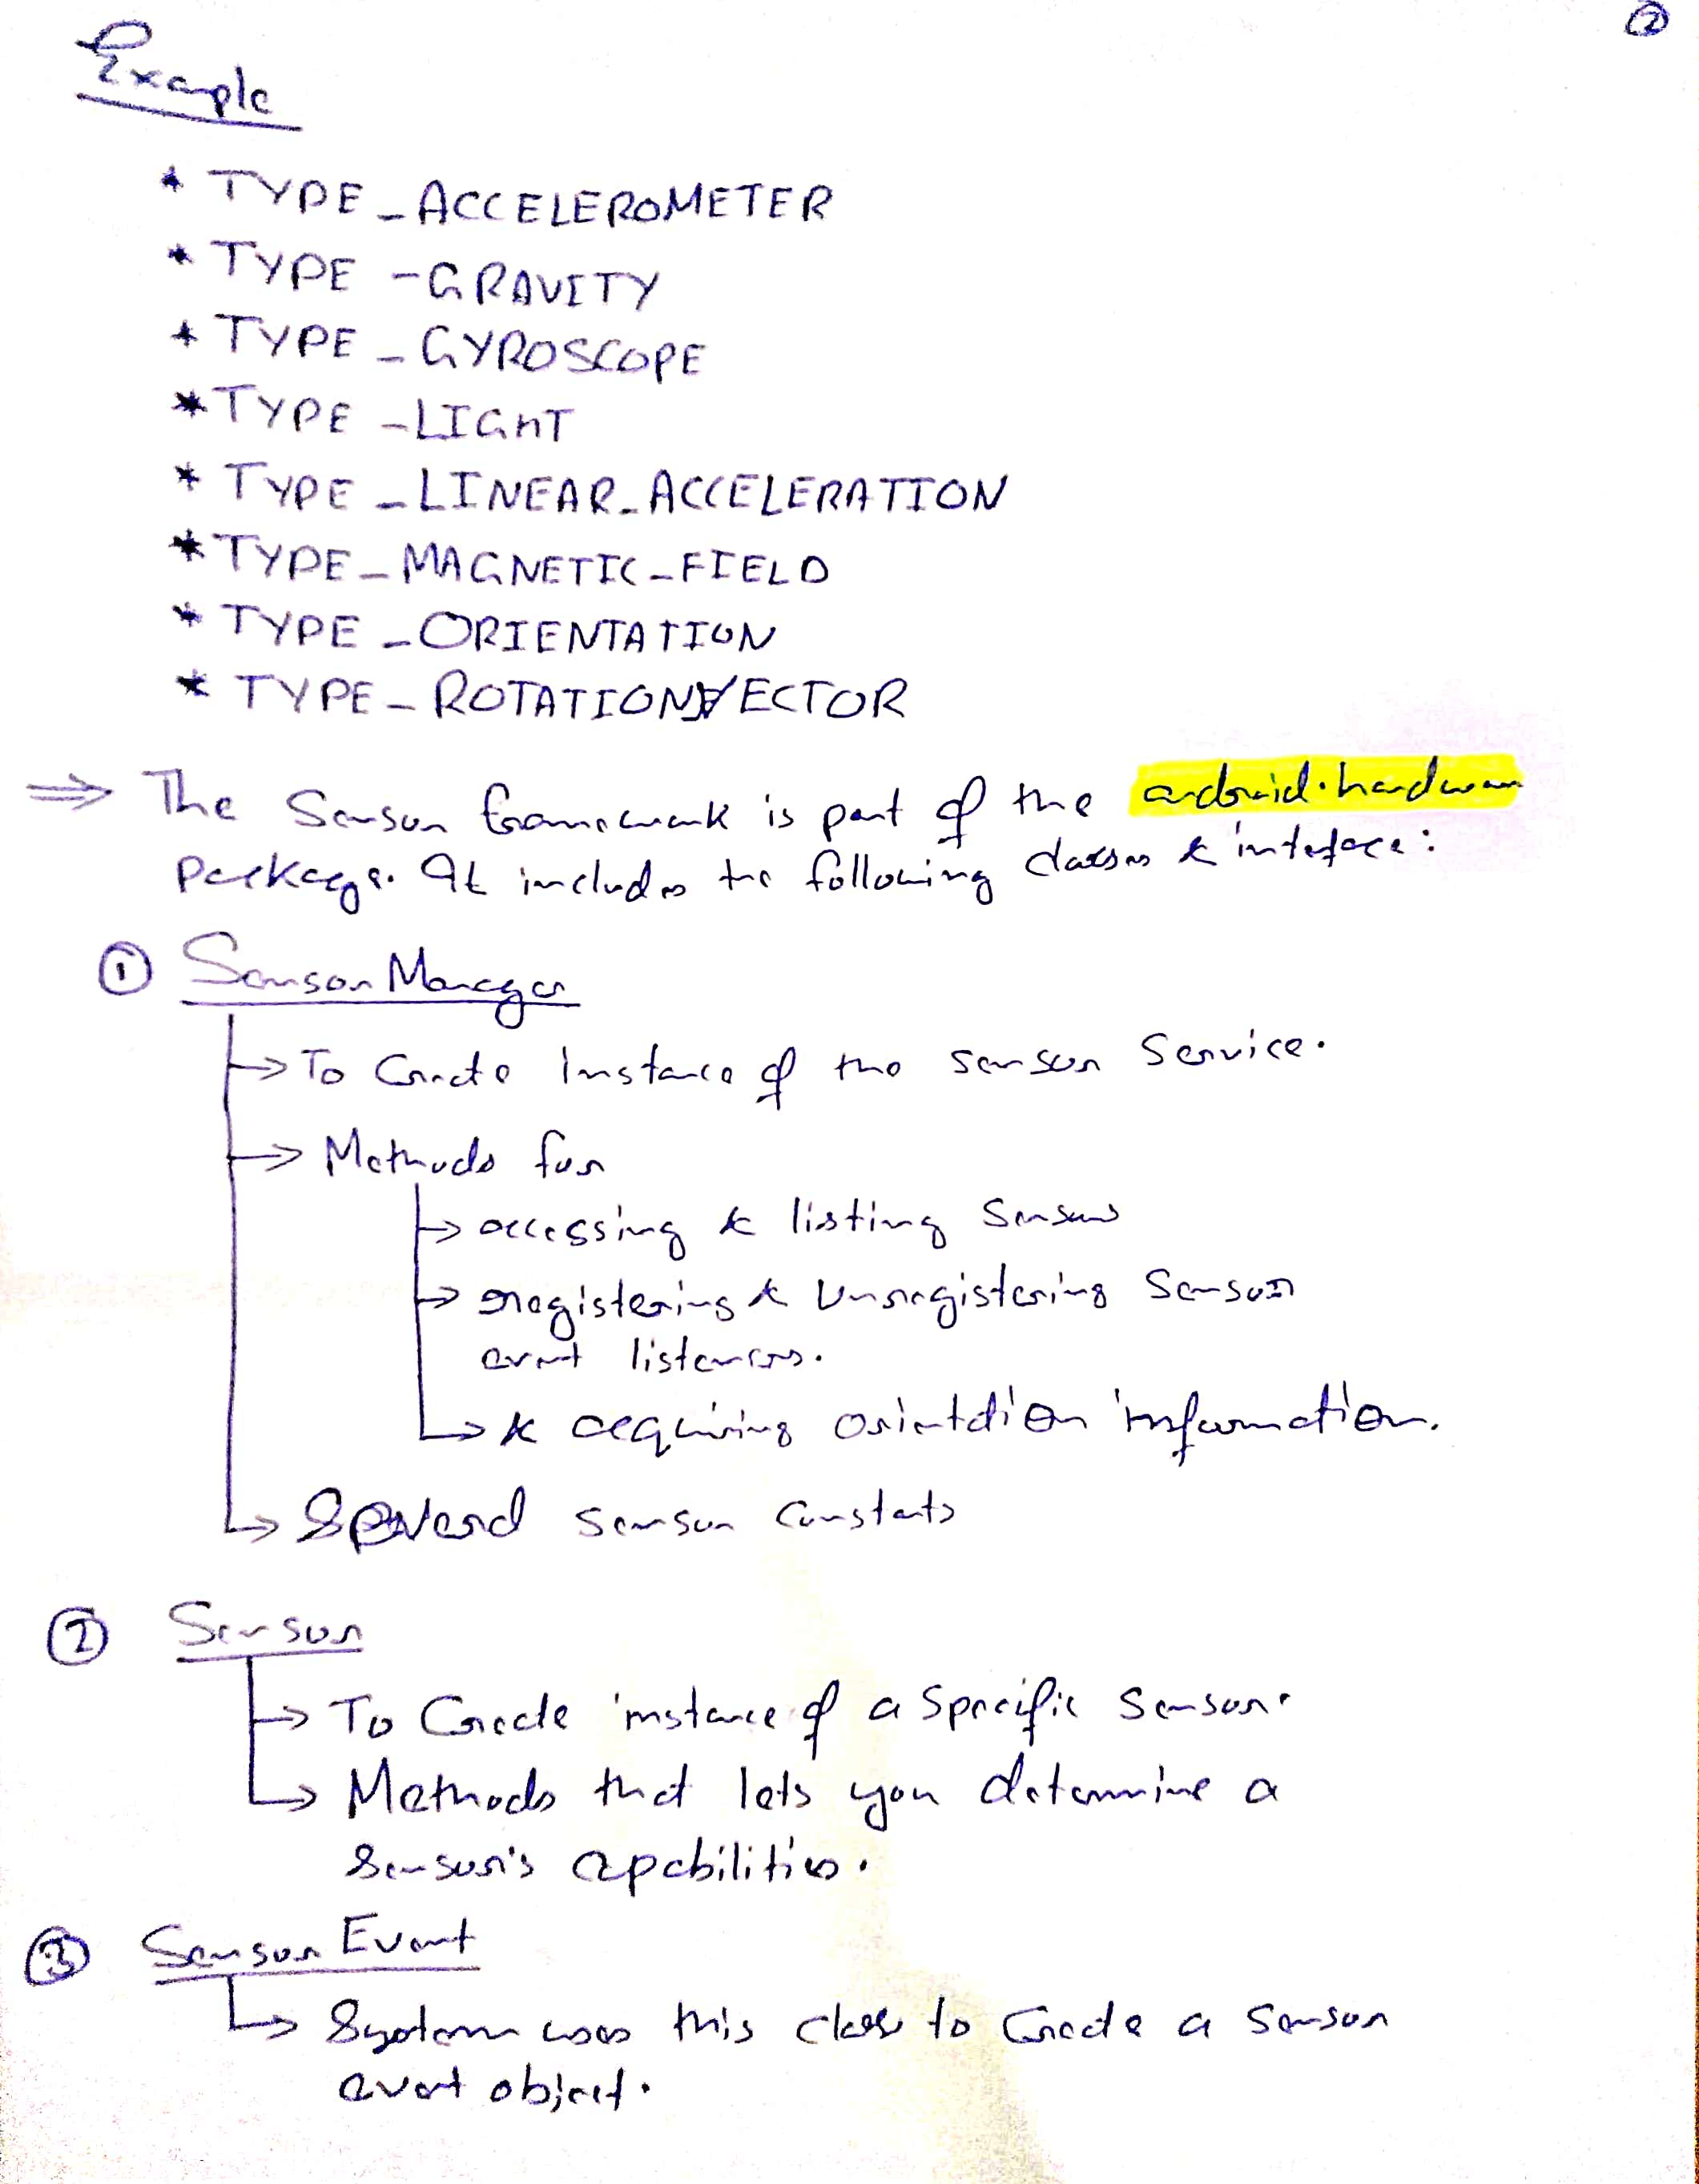 ②
Example
* TYPE_ACCELEROMETER
* TYPE_GRAVITY
* TYPE_GYROSCOPE
* TYPE_LIGHT
* TYPE_LINEAR_ACCELERATION
* TYPE_MAGNETIC_FIELD
* TYPE_ORIENTATION
* TYPE_ROTATION_VECTOR
⇒ The Sensor framework is part of the android.hardware
package. It includes the following classes & interface:
① Sensor Manager
→ To Create Instance of the sensor Service.
→ Methods for
→ accessing & listing Sensors
→ registering & Unregistering Sensor
event listeners.
→ & acquiring orientation information.
→ Several sensor Constants
② Sensor
→ To Create instance of a Specific Sensor.
→ Methods that lets you determine a
Sensor's capabilities.
③ Sensor Event
→ System uses this class to Create a sensor
event object.